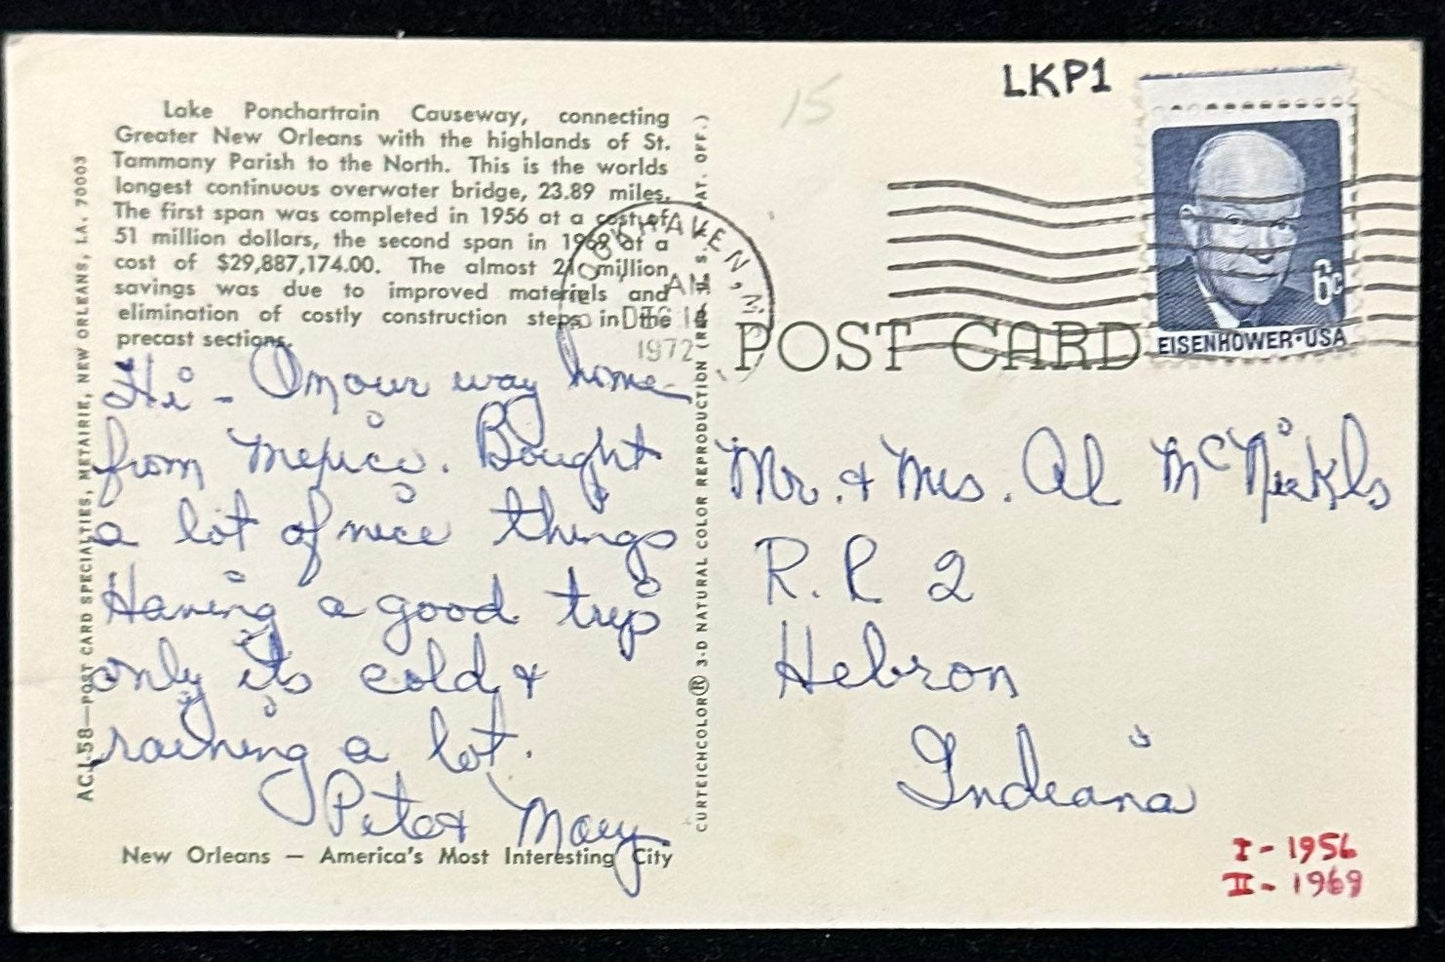 Lake Ponchartrain Causeway, connecting
Greater New Orleans with the highlands of St.
Tammany Parish to the North. This is the worlds
longest continuous overwater bridge, 23.89 miles.
The first span was completed in 1956 at a cost of
51 million dollars, the second span in 1969 at a
cost of $29,887,174.00. The almost 21 million
savings was due to improved materiels and
elimination of costly construction steps in the
precast sections.
Hi - On our way home
from Mexico. Bought
a lot of nice things
Having a good trip
only its cold &
raining a lot.
Pete & Mary
New Orleans — America's Most Interesting City
ACL-58—POST CARD SPECIALTIES, METAIRIE, NEW ORLEANS, LA. 70003
CURTEICHCOLOR® 3-D NATURAL COLOR REPRODUCTION (REG. U. S. PAT. OFF.)
15
LKP1
AM
DEC
1972
6c
EISENHOWER·USA
POST CARD
Mr. & Mrs. Al McNickls
R.R. 2
Hebron
Indiana
I - 1956
II - 1969